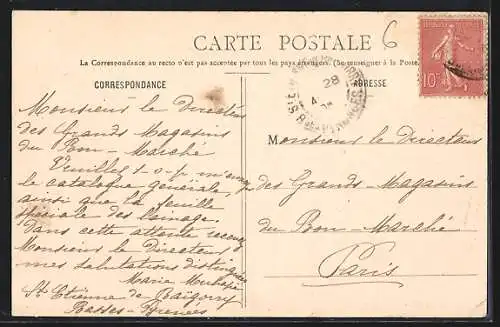 CARTE POSTALE
6
La Correspondance au recto n'est pas acceptée par tous les pays étrangers. (Se renseigner à la Poste.
CORRESPONDANCE
ADRESSE
10
28
Monsieur le Directeur
des Grands Magasins
du Bon-Marché
Veuillez s-v-p, m'envoyer
le catalogue générale
ainsi que la feuille
spéciale des lainage.
Dans cette attente recevez
Monsieur le Directeur
mes salutations distinguées
Maria
St Etienne de Baïgorry
Basses-Pyrenées
Monsieur le Directeur
des Grands-Magasins
du Bon-Marché
Paris